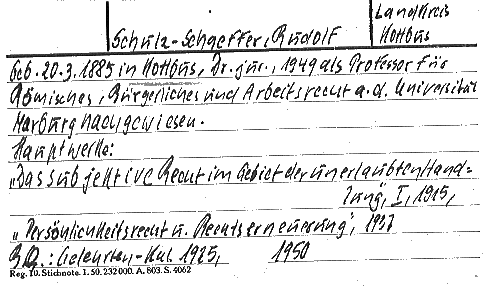 Landkreis
Schulz-Schaeffer, Rudolf
Kottbus
Geb. 20.3.1885 in Kottbus, Dr. jur., 1949 als Professor für
Römisches, Bürgerliches und Arbeitsrecht a. d. Universität
Marburg nachgewiesen.
Hauptwerke:
„Das subjektive Recht im Gebiet der unerlaubten Hand=
lung", I, 1915,
„Persönlichkeitsrecht u. Rechtserneuerung", 1937
: Gelehrten-Kal. 1925, 1950
Reg. 10. Stichnote. 1. 50. 232 000. A. 803. S. 4062